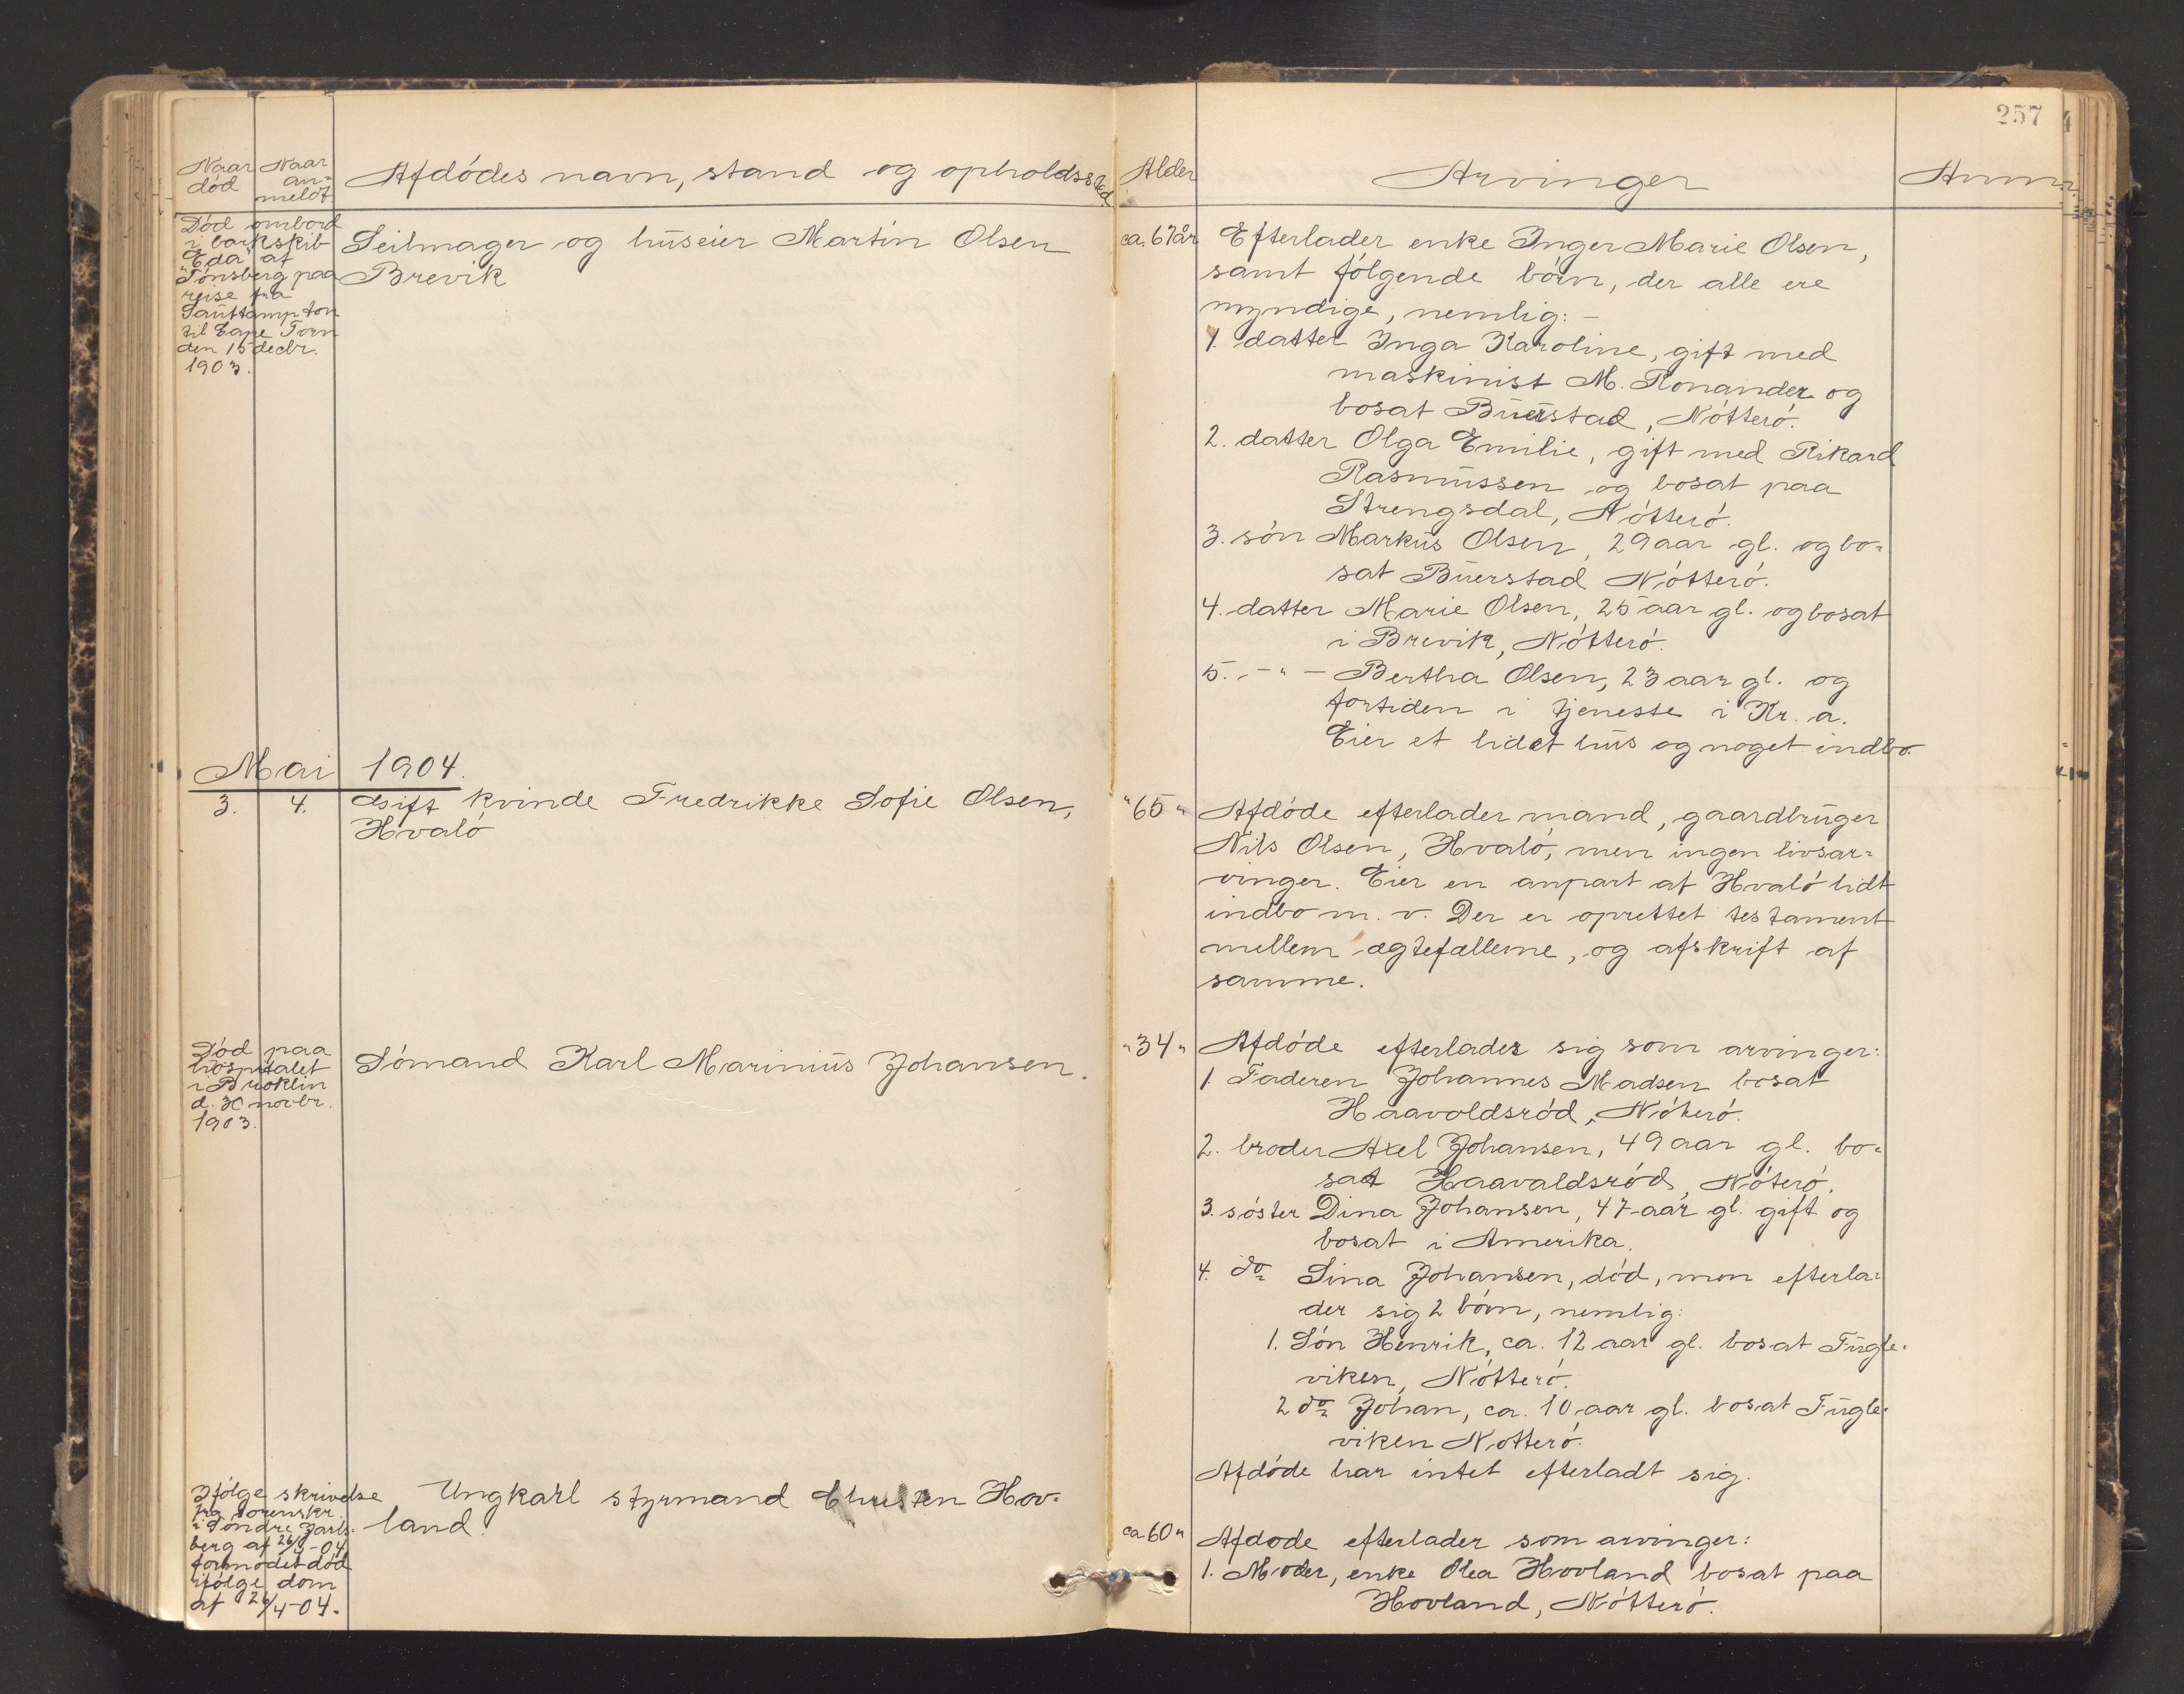 257
Naar død
Naar an=
meldt.
Afdødes navn, stand og opholdssted.
Alder
Arvinger
Anm.
Død ombord
i barkskib
"Eda" af
Tønsberg paa
reise fra
Sauthampton
til Cape Torn
den 15 decbr.
1903.
Seilmager og huseier Martin Olsen
Brevik
ca. 67 år
Efterlader enke Inger Marie Olsen,
samt følgende børn, der alle ere
myndige, nemlig: -
1. datter Inga Karoline, gift med
maskinist M. Ronander og
bosat Buerstad, Nøtterø.
2. datter Olga Emilie, gift med Rikard
Rasmussen og bosat paa
Strengsdal, Nøtterø.
3. søn Markus Olsen, 29 aar gl. og bo=
sat Buerstad Nøtterø.
4. datter Marie Olsen, 25 aar gl. og bosat
i Brevik, Nøtterø.
5. - " - Bertha Olsen, 23 aar gl. og
fortiden i tjeneste i Kr. a.
Eier et lidet hus og noget indbo.
Mai 1904.
3. 4. Gift kvinde Fredrikke Sofie Olsen,
Hvalø
" 65 "
Afdøde efterlader mand, gaardbruger
Nils Olsen, Hvalø, men ingen livsar=
vinger. Eier en anpart af Hvalø lidt
indbo m. v. Der er oprettet testament
mellem ægtefællerne, og afskrift af
samme.
Død paa
hospitalet
i Bruklin
d. 30 novbr.
1903.
Sømand Karl Marinius Johansen.
" 34 "
Afdøde efterlader sig som arvinger:
1. Faderen Johannes Madsen bosat
Haavoldsrød, Nøterø.
2. broder Axel Johansen, 49 aar gl. bo=
sat Haavaldsrød, Nøterø.
3. søster Dina Johansen, 47 aar gl. gift og
bosat i Amerika.
4. do Lina Johansen, død, men efterla=
der sig 2 børn, nemlig:
1. Søn Henrik, ca. 12 aar gl. bosat Fugle=
viken, Nøtterø.
2 do Johan, ca. 10 aar gl. bosat Fugle=
viken Nøtterø.
Afdøde har intet efterladt sig.
Ifølge skrivelse
fra sorenskr.
i Søndre Jarls=
berg af 26/4-04
formodet død
ifølge dom
af 26/4-04.
Ungkarl styrmand Christen Hov=
land.
ca 60 "
Afdøde efterlader som arvinger:
1. Moder, enke Olea Hovland bosat paa
Hovland, Nøtterø.